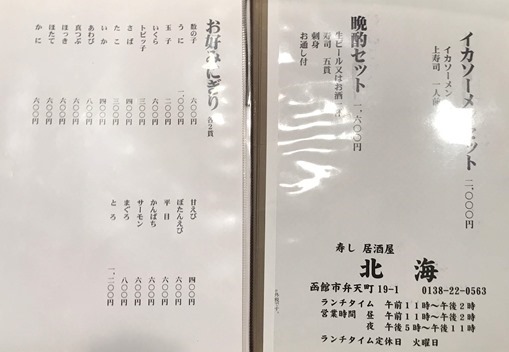 イカソーメンセット 二、〇〇〇円
イカソーメン
上寿司 一人前
晩酌セット 一、六〇〇円
生ビール又はお酒
寿司 五貫
刺身
お通し付
寿し 居酒屋
北海
函館市弁天町19-1 0138-22-0563
ランチタイム 午前11時〜午後2時
営業時間 昼 午前11時〜午後2時
夜 午後5時〜午後11時
ランチタイム定休日 火曜日
お好みにぎり 各2貫
数の子 六〇〇円
うに 一、〇〇〇円
玉子 二〇〇円
いくら 六〇〇円
トビッ子 三〇〇円
さば 四〇〇円
たこ 三〇〇円
いか 四〇〇円
あわび 八〇〇円
真つぶ 六〇〇円
ほっき 六〇〇円
ほたて 六〇〇円
かに 六〇〇円
甘えび 四〇〇円
ぼたんえび 六〇〇円
平目 六〇〇円
かんぱち 六〇〇円
サーモン 六〇〇円
まぐろ 八〇〇円
とろ 一、二〇〇円